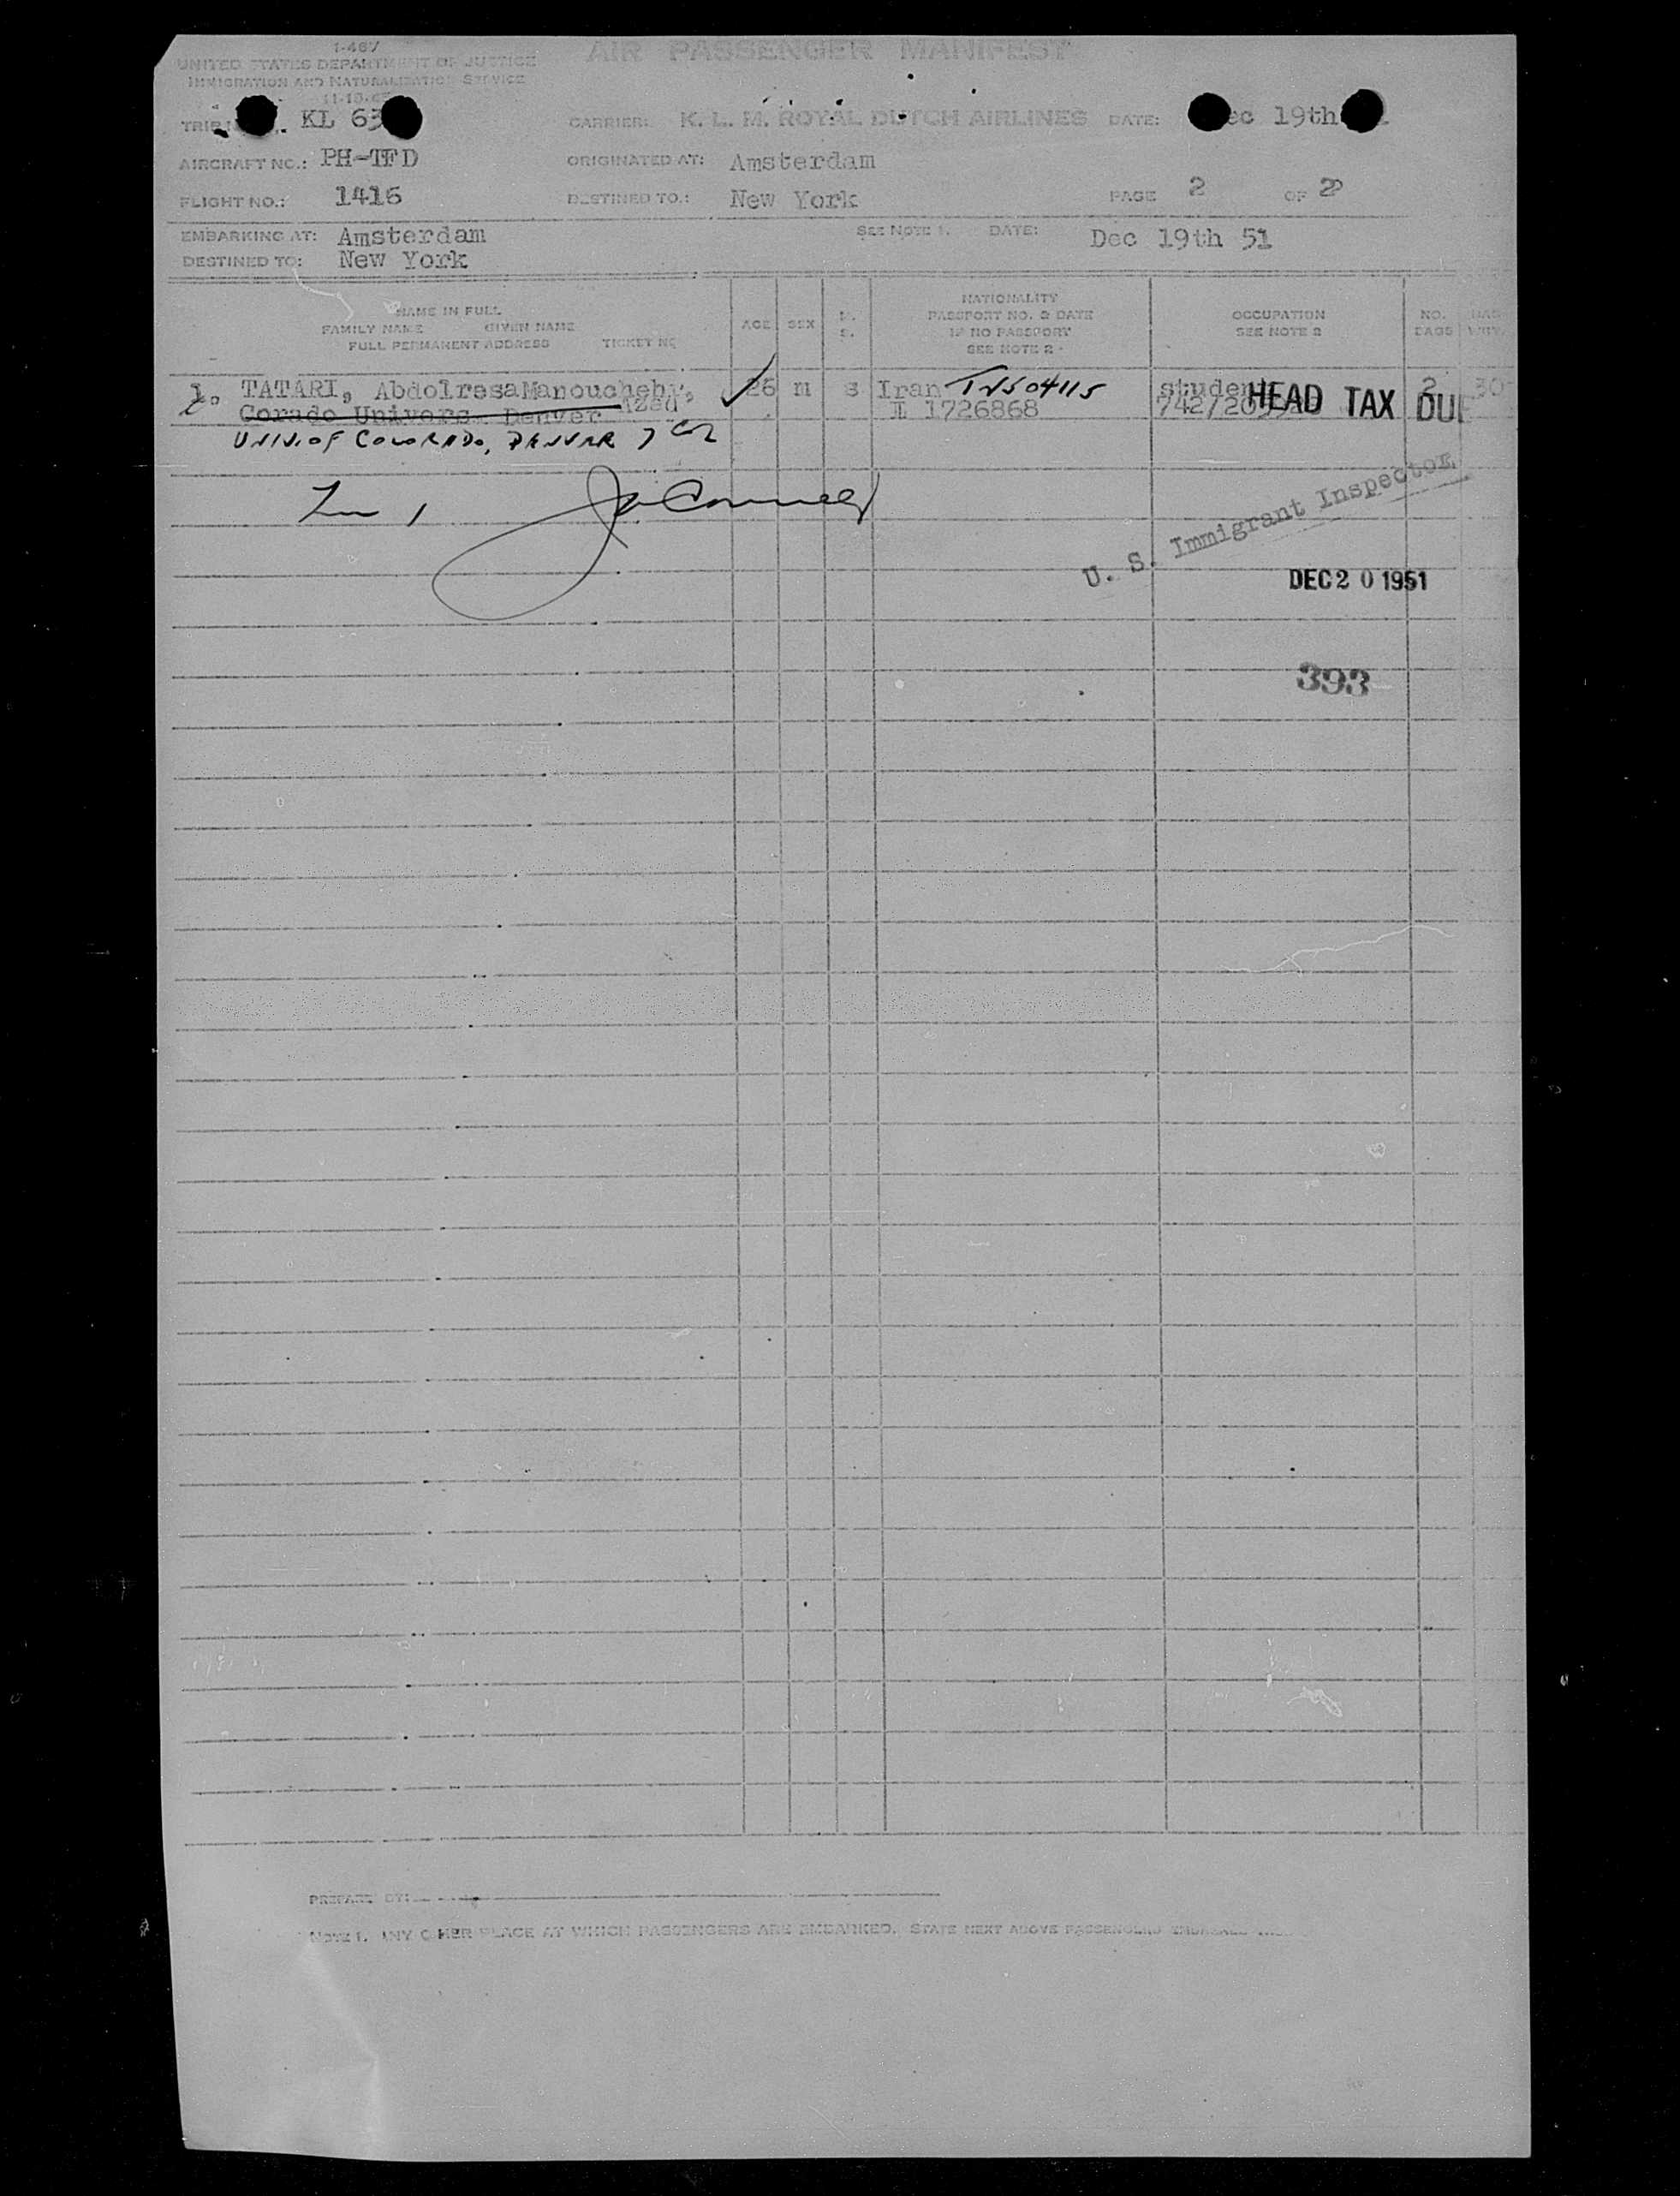 I-467
UNITED STATES DEPARTMENT OF JUSTICE
IMMIGRATION AND NATURALIZATION SERVICE
AIR PASSENGER MANIFEST
TRIP KL 63 CARRIER: K. L. M. ROYAL DUTCH AIRLINES DATE: ec 19th
AIRCRAFT NO.: PH-TFD ORIGINATED AT: Amsterdam
FLIGHT NO.: 1416 DESTINED TO.: New York PAGE 2 OF 2
EMBARKING AT: Amsterdam SEE NOTE 1. DATE: Dec 19th 51
DESTINED TO: New York
NAME IN FULL
FAMILY NAME GIVEN NAME
FULL PERMANENT ADDRESS TICKET NO
AGE SEX M. S.
NATIONALITY
PASSPORT NO. & DATE
IF NO PASSPORT
SEE NOTE 2
OCCUPATION
SEE NOTE 2
NO. BAGS
1. TATARI, Abdolresa Manouchehr, 26 m s Iran student 2 30
Azed
Corado Univers. Denver L 1726868
HEAD TAX DUE
UNIV. OF COLORADO, DENVER 7 Col
U. S. Immigrant Inspector
DEC 20 1951
393
PREPARED BY:
NOTE 1. ANY OTHER PLACE AT WHICH PASSENGERS ARE EMBARKED, STATE NEXT ABOVE PASSENGERS